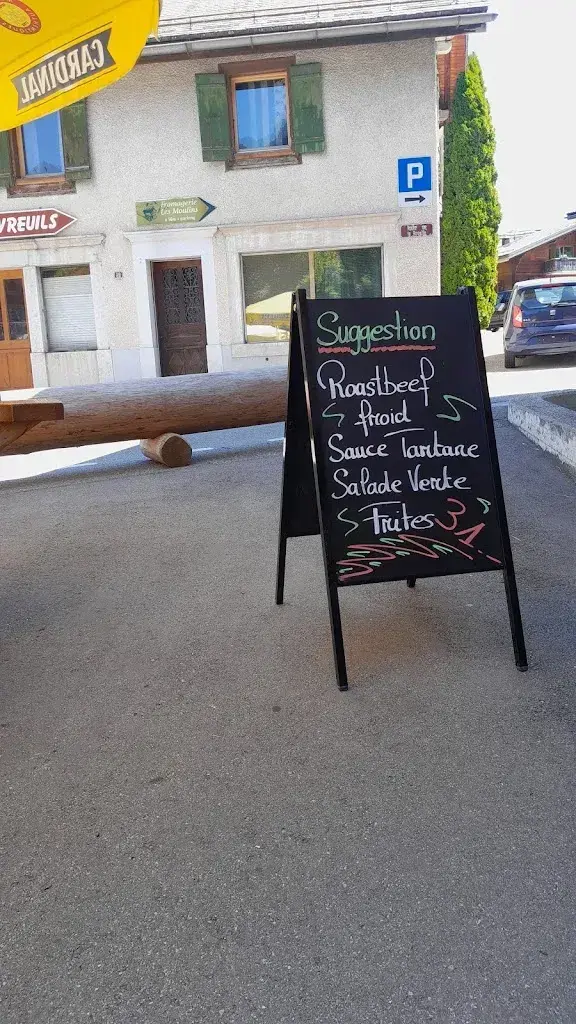 CARDINAL
VREUILS
Fromagerie
Les Moulins
P
Suggestion
Roastbeef
froid
Sauce Tartare
Salade Verte
Frites 31.-